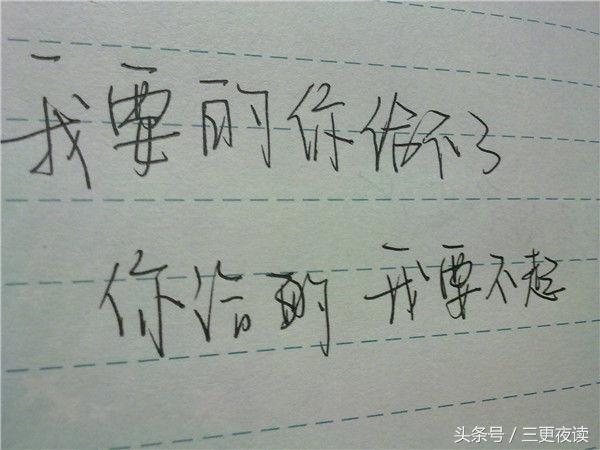 我要的你给不了
你给的 我要不起
头条号／三更夜读